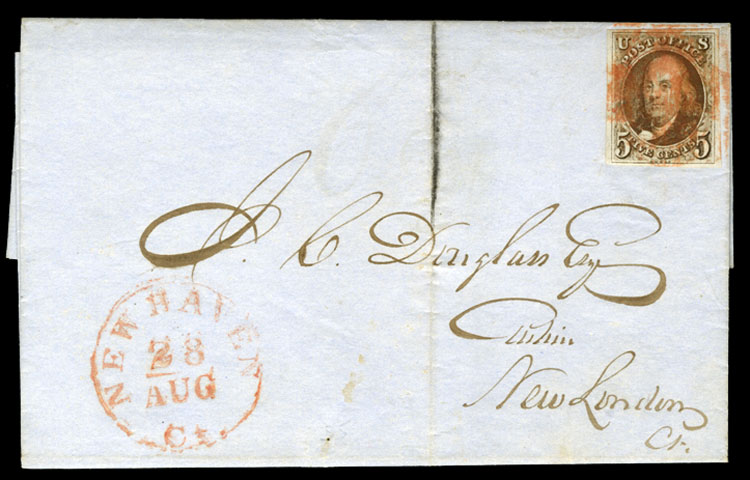 U S
POST OFFICE
5 5
FIVE CENTS
J. C. Douglass Esq
Cashier
New London
Ct.
NEW HAVEN
28
AUG
Ct.